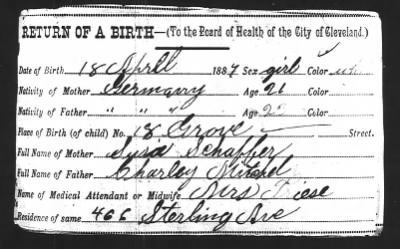 RETURN OF A BIRTH—(To the Board of Health of the City of Cleveland.)
Date of Birth 18 April 1887 Sex girl Color wh
Nativity of Mother Germany Age 21 Color
Nativity of Father " " " Age 22 Color
Place of Birth (of child) No. 18 Grove Street.
Full Name of Mother Susa Schaffer
Full Name of Father Charley Mitchel
Name of Medical Attendant or Midwife Mrs Tiese
Residence of same 466 Sterling Ave